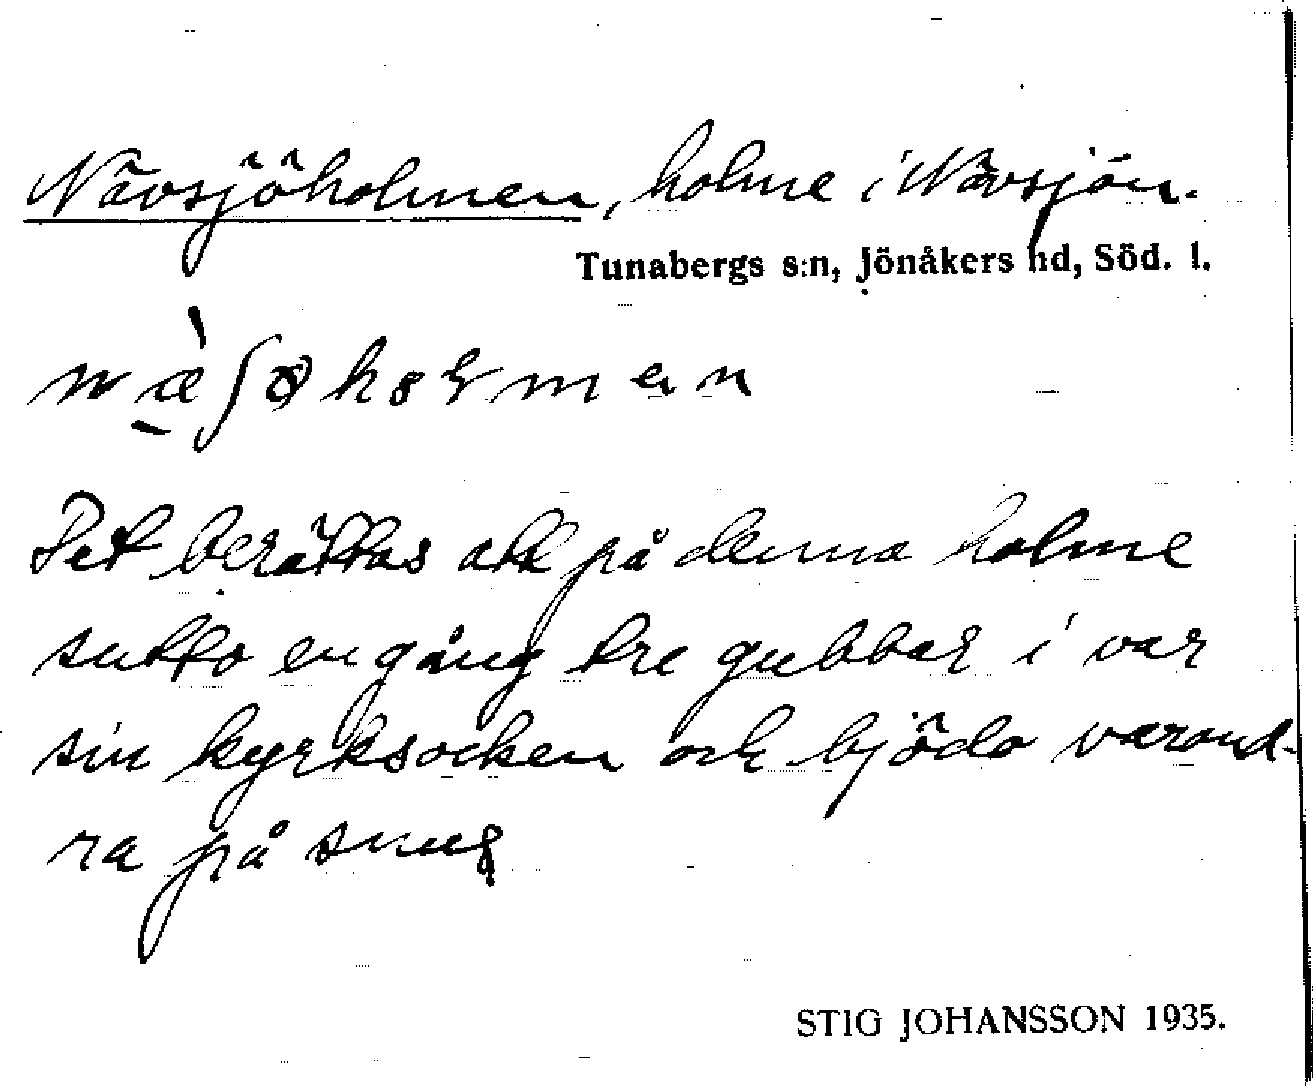 Nävsjöholmen, holme i Nävsjön.
Tunabergs s:n, Jönåkers hd, Söd. l.
Det berättas att på denna holme
sutto en gång tre gubbar i var
sin kyrksocken och bjödo varand-
ra på snus
STIG JOHANSSON 1935.